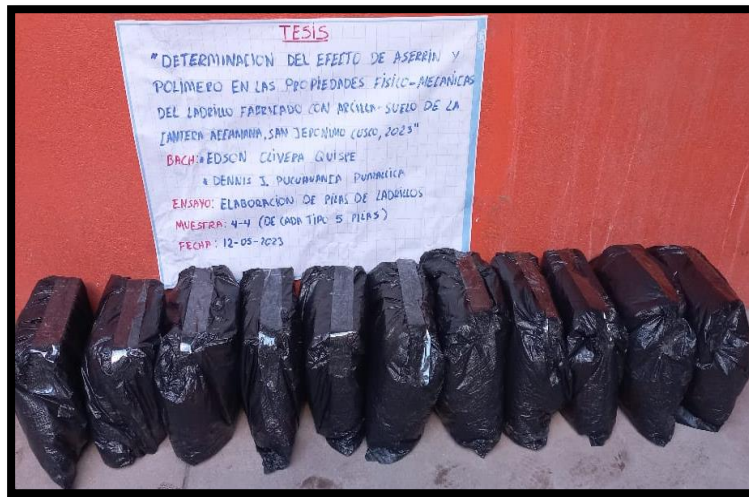 TESIS
"DETERMINACION DEL EFECTO DE ASERRIN Y
POLIMERO EN LAS PROPIEDADES FISICO-MECANICAS
DEL LADRILLO FABRICADO CON ARCILLA-SUELO DE LA
CANTERA, SAN JERONIMO CUSCO, 2023"
BACH: • EDSON QUISPE
• DENNIS J.
ENSAYO: ELABORACION DE PILAS DE LADRILLOS
MUESTRA: 4-4 (DE CADA TIPO 5 PILAS)
FECHA: 12-05-2023